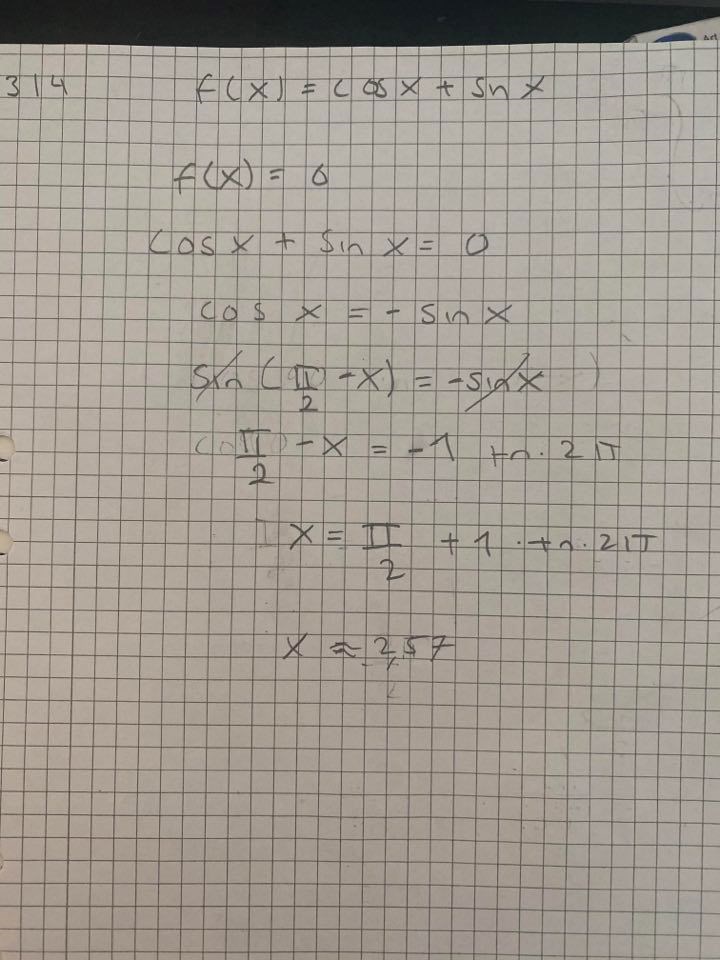 314 f(x) = cos x + sin x
f(x) = 0
cos x + sin x = 0
cos x = - sin x
sin (π/2 - x) = - sin x
π/2 - x = -1 + n · 2π
x = π/2 + 1 · + n · 2π
x ≈ 2,57